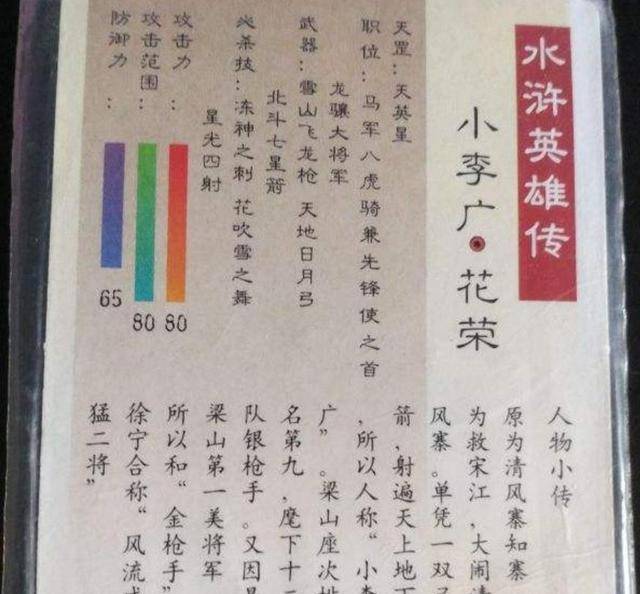 水浒英雄传
小李广·花荣
天罡：天英星
职位：马军八虎骑兼先锋使之首
龙骧大将军
武器：雪山飞龙枪 天地日月弓
北斗七星箭
必杀技：冻神之刺 花吹雪之舞
星光四射
攻击力：
80
攻击范围：
80
防御力：
65
人物小传
原为清风寨知寨
为救宋江，大闹清
风寨。单凭一双
箭，射遍天上地下
，所以人称“小李
广”。梁山座次排
名第九，麾下十二
队银枪手。又因是
梁山第一美将军
所以和“金枪手”
徐宁合称“风流
猛二将”